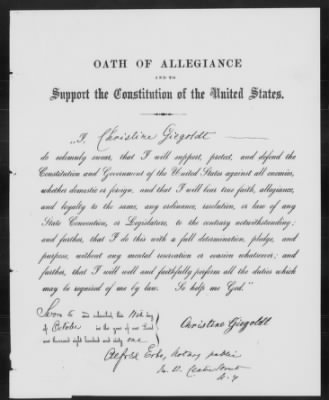 OATH OF ALLEGIANCE
AND TO
Support the Constitution of the United States.
"I, Christine Giegoldt
do solemnly swear, that I will support, protect, and defend the
Constitution and Government of the United States against all enemies,
whether domestic or foreign, and that I will bear true faith, allegiance,
and loyalty to the same, any ordinance, resolution, or law of any
State Convention, or Legislature, to the contrary notwithstanding;
and further, that I do this with a full determination, pledge, and
purpose, without any mental reservation or evasion whatsoever; and
further, that I will well and faithfully perform all the duties which
may be required of me by law. So help me God."
Sworn to and subscribed, this day
of October in the year of our Lord
one thousand eight hundred and sixty one
Christine Giegoldt
Notary public